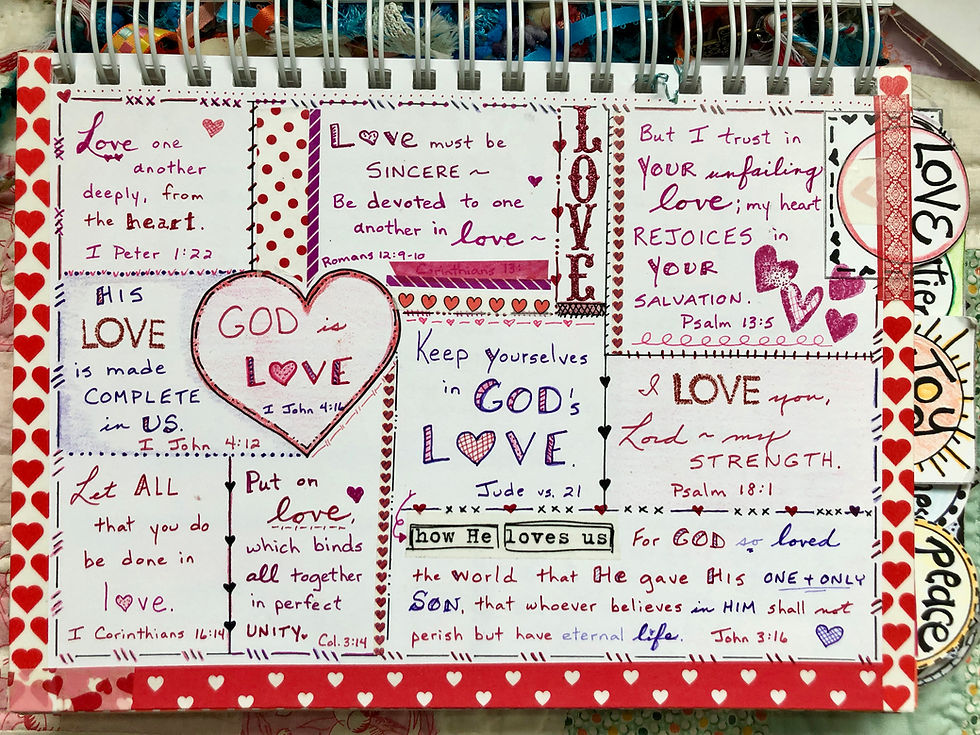 Love one
another
deeply, from
the heart.
I Peter 1:22
Love must be
SINCERE ~
Be devoted to one
another in love ~
Romans 12:9-10
Corinthians 13:
LOVE
But I trust in
YOUR unfailing
love; my heart
REJOICES in
YOUR
SALVATION.
Psalm 13:5
HIS
LOVE
is made
COMPLETE
in US.
I John 4:12
GOD is
LOVE
I John 4:16
Keep yourselves
in GOD's
LOVE.
Jude vs. 21
I LOVE you,
Lord ~ my
STRENGTH.
Psalm 18:1
Let ALL
that you do
be done in
love.
I Corinthians 16:14
Put on
love,
which binds
all together
in perfect
UNITY.
Col. 3:14
how He loves us
For GOD so loved
the world that He gave His ONE + ONLY
SON, that whoever believes in HIM shall not
perish but have eternal life. John 3:16
LOVE
JOY
peace